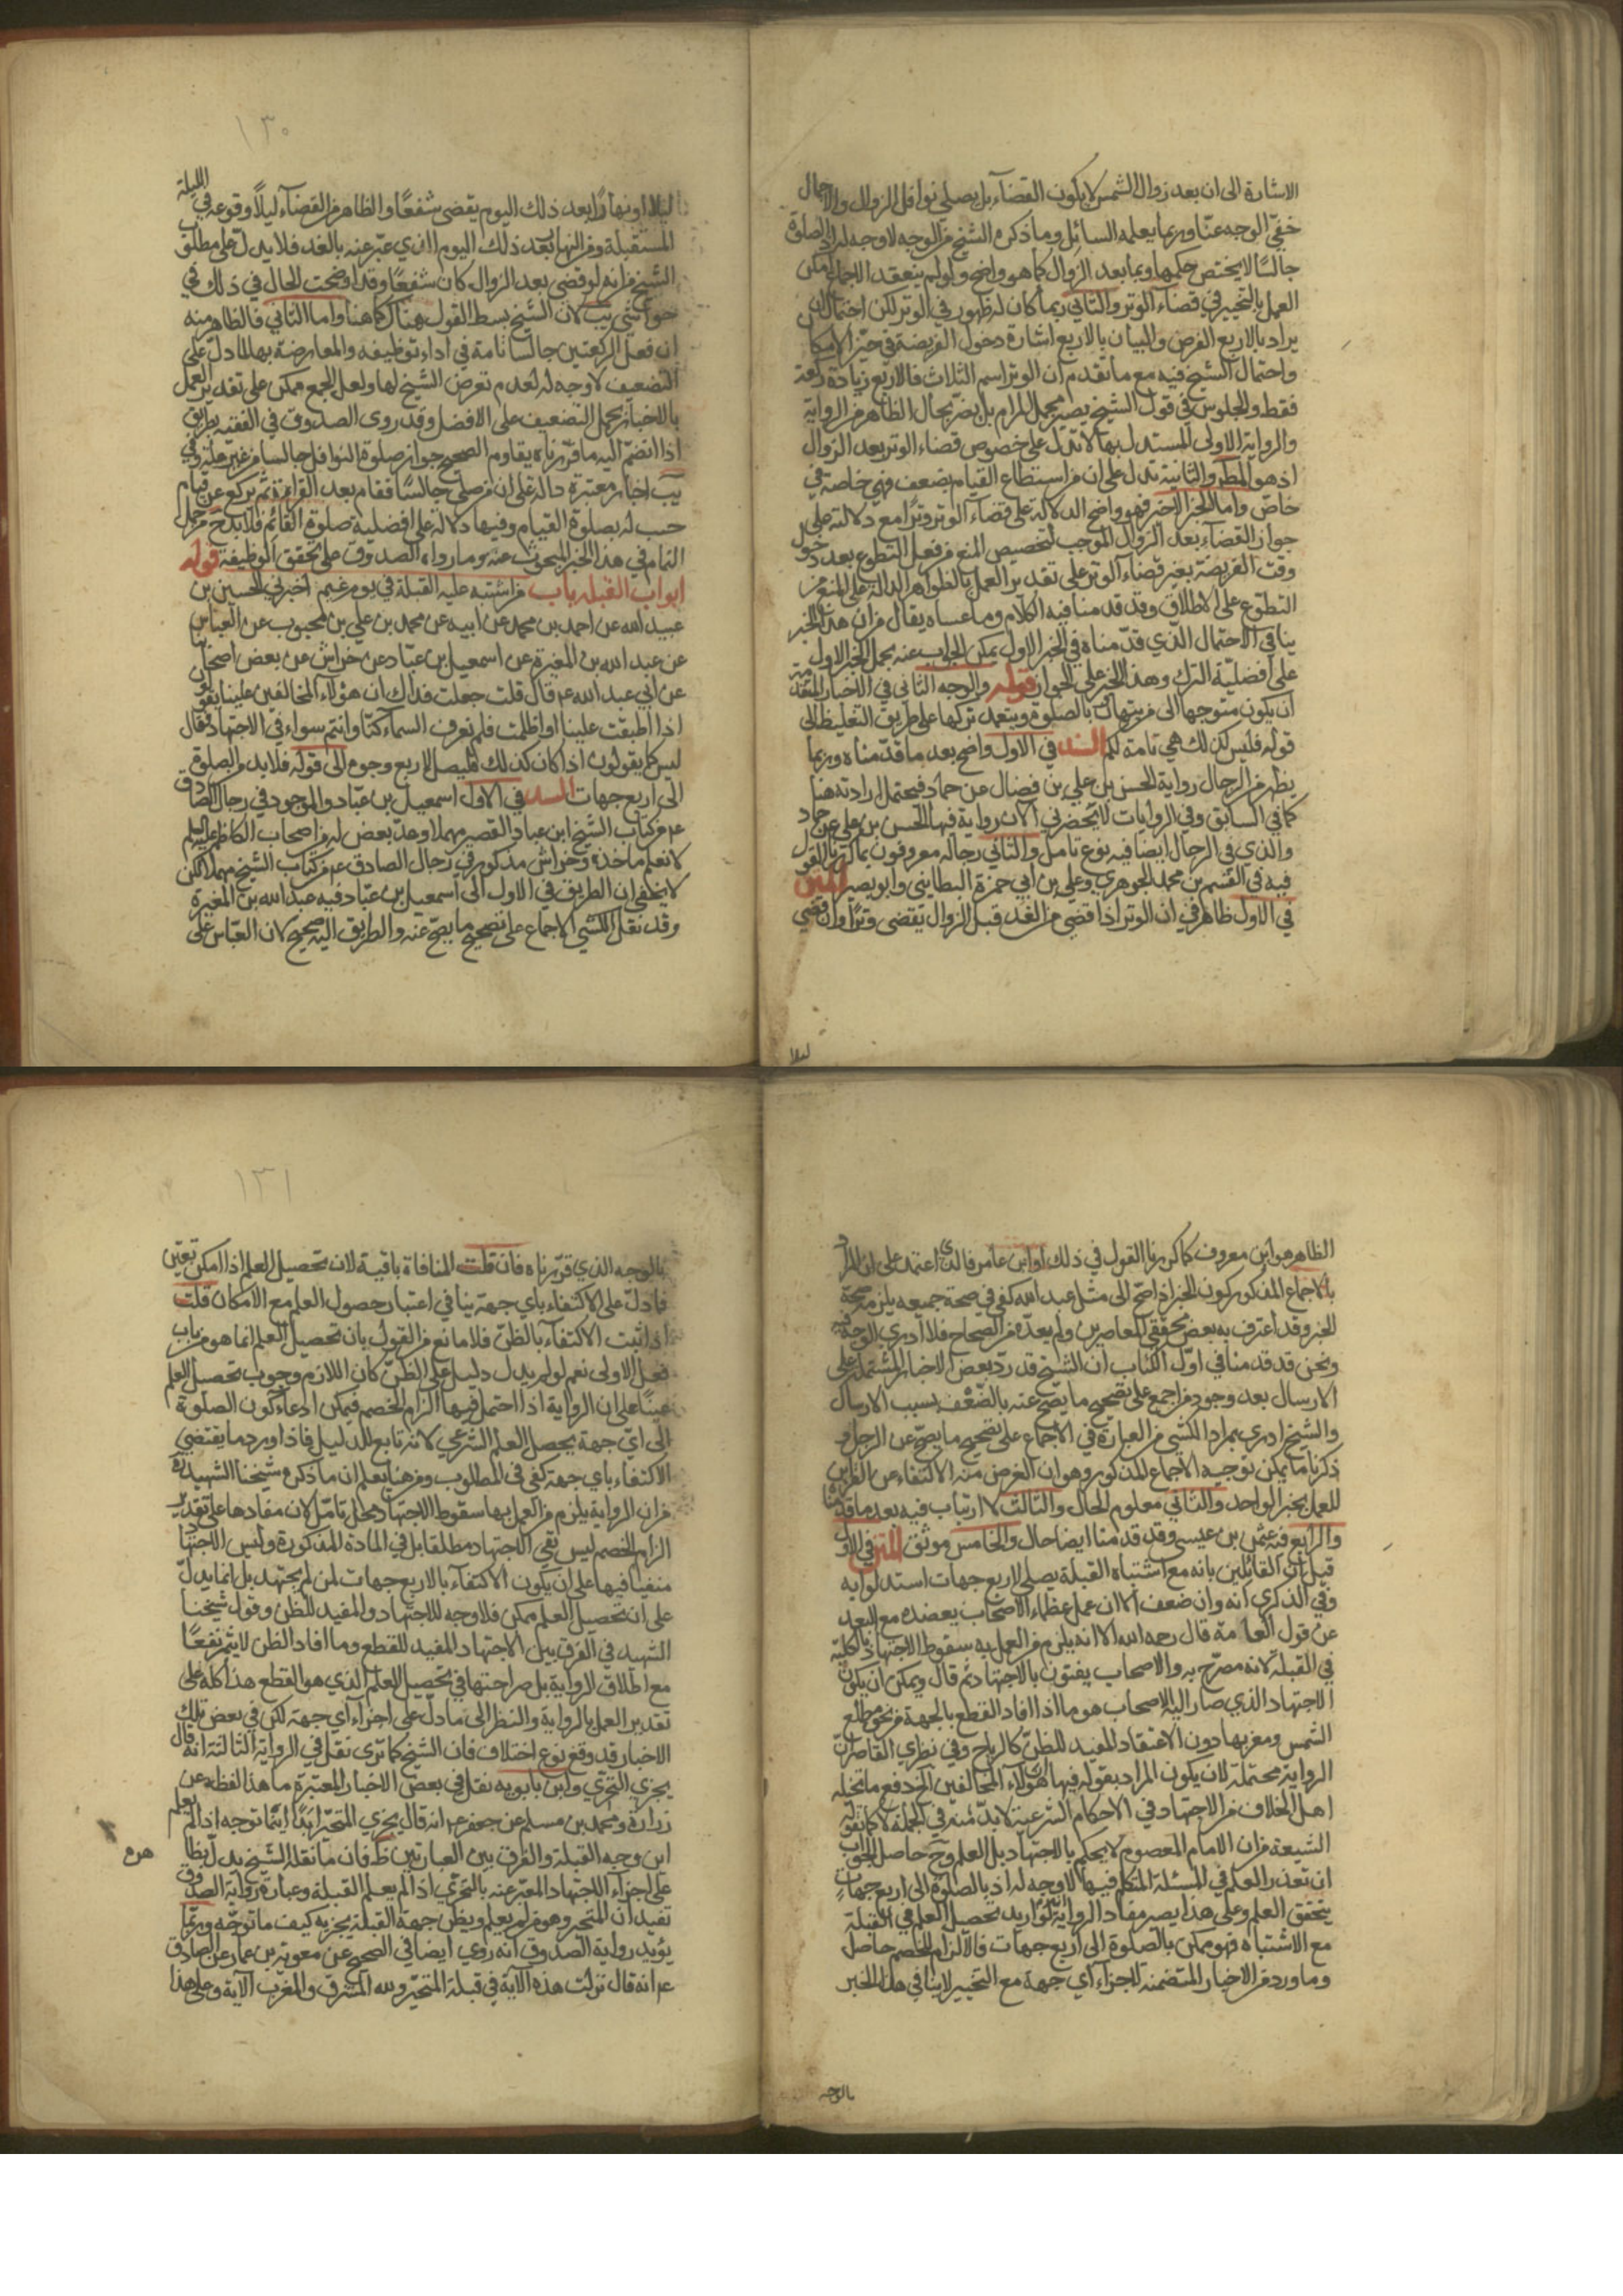 الاشارة الى ان بعد زوال الشمس لا يكون القضآء بل يصلي نوافل الزوال والاجمال
خفيّ الوجه عنّا وربما يعلمه السائل وما ذكره الشيخ من الوجه لا وجه له اذ الصلوة
جالسًا لا يختص حكمها بما بعد الزوال كما هو واضح ولو لم ينعقد الاجماع امكن
العمل بالتخيير في قضاء الوتر والثاني ربما كان له ظهور في الوتر لكن احتمال ان
يراد بالاربع الفرض والبيان بالاربع اشارة دخول الفريضة في حيّز الامكان
واحتمال الشيخ فيه مع ما تقدم ان الوتر اسم الثلاث فالاربع زيادة ركعة
فقط والجلوس في قول الشيخ يصير مجمل المرام بل يضرّ بحال الظاهر من الرواية
والرواية الاولى المستدل بها لا تدل على خصوص قضاء الوتر بعد الزوال
اذ هو المط والثانية تدل على ان من استطاع القيام يضعف فهي خاصة في
خاص واما الخبر الاخير فهو واضح الدلالة على قضآء الوتر وترًا مع دلالته على
جواز القضآء بعد الزوال الموجب لتخصيص المنع من فعل التطوع بعد دخول
وقت الفريضة بغير قضآء الوتر على تقدير العمل بالظواهر الدالة على المنع من
التطوع على الاطلاق وقد قدمنا فيه الكلام وما عساه يقال من ان هذا الخبر
ينافي الاحتمال الذي قدّمناه في الخبر الاول يمكن الجواب عنه بحمل الخبر الاول
على افضليّة الترك وهذا الخبر على الجواز قوله والوجه الثاني في الاخبار المتقدمة
ان يكون متوجها الى من يتهاون بالصلوة ويتعمد تركها على طريق التغليظ الى
قوله فليس كذلك هي تامة لكم السند في الاول واضح بعد ما قدّمناه وربما
يظهر من الرجال رواية الحسن بن علي بن فضال عن حماد فيحتمل ارادته هنا
كما في السابق وفي الروايات لا يحضرني الان رواية فيها الحسن بن علي عن حماد
والذي في الرجال ايضا فيه نوع تامل والثاني رجاله معروفون بما كررنا القول
فيه في القسم بن محمد الجوهري وعلي بن ابي حمزة البطايني وابو بصير المتن
في الاول ظاهر في ان الوتر اذا قضي من الغد قبل الزوال يقضى وترًا وان قضي
ليلا
١٣٠
ليلا او نهارًا بعد ذلك اليوم يقضى شفعًا والظاهر من القضآء ليلًا وقوعه في الليلة
المستقبلة ومن النهار بعد ذلك اليوم الذي عبّر عنه بالغد فلا يدلّ على مطلوب
الشيخ من انه لو قضى بعد الزوال كان شفعًا وقد اوضحت الحال في ذلك في
حواشي يب لان الشيخ بسط القول هناك كما هنا واما الثاني فالظاهر منه
ان فعل الركعتين جالسا تامة في اداء توظيفه والمعارضة بها لما دلّ على
التضعيف لا وجه له لعدم تعرض الشيخ لها ولعل الجمع ممكن على تقدير العمل
بالاخبار بحمل التضعيف على الافضل وقد روى الصدوق في الفقيه بطريق
اذا انضمّ اليه ما قرّرناه يقاوم الصحيح جواز صلوة النوافل جالسا من غير علة وفي
يب اخبار معتبرة دالة على ان من صلى جالسًا فقام بعد القراءة ثم يركع عن قيام
حسب له بصلوة القيام وفيها دلالة على افضلية صلوة القائم فلا بد ح من حمل
التمام في هذا الخبر المبحوث عنه وما رواه الصدوق على تحقق الوظيفة قوله
ابواب القبلة باب من اشتبه عليه القبلة في يوم غيم اخبرني الحسين بن
عبيد الله عن احمد بن محمد عن ابيه عن محمد بن علي بن محبوب عن العباس
عن عبد الله بن المغيرة عن اسمعيل بن عبّاد عن خراش عن بعض اصحابنا
عن ابي عبد الله ع قال قلت جعلت فداك ان هؤلاء المخالفين علينا يقولون
اذا اطبقت علينا او اظلمت فلم نعرف السمآء كنّا وانتم سواء في الاجتهاد فقال
ليس كما يقولون اذا كان كذلك فليصل لاربع وجوه الى قوله فلا بد من الصلوة
الى اربع جهات السند في الاول اسمعيل بن عبّاد والموجود في رجال الصادق
ع من كتاب الشيخ ابن عباد القصير مهملا وعدّ بعض له من اصحاب الكاظم عليه السلم
لا نعلم ماخذه وخراش مذكور في رجال الصادق ع من كتاب الشيخ مهملا لكن
لا يخفى ان الطريق في الاول الى اسمعيل بن عبّاد فيه عبد الله بن المغيرة
وقد نقل الكشي الاجماع على تصحيح ما يصحّ عنه والطريق اليه صحيح لان العبّاس على
الظاهر هو ابن معروف كما كررنا القول في ذلك او ابن عامر فالذي اعتمد على ان المراد
بالاجماع المذكور كون الخبر اذا صح الى مثل عبد الله كفى في صحة جميعه يلزمه صحة
الخبر وقد اعترف به بعض محققي المعاصرين ولم يعدّه من الصحاح فلا ادري الوجه فيه
ونحن قد قدمنا في اوّل الكتاب ان الشيخ قد ردّ بعض الاخبار المشتملة على
الارسال بعد وجود من اجمع على تصحيح ما يصح عنه بالضّعف بسبب الارسال
والشيخ ادرى بمراد الكشي من العبارة في الاجماع على تصحيح ما يصح عن الرجل و
ذكرنا ما يمكن توجيه الاجماع المذكور وهو ان الغرض منه الاكتفاء عن القراين
للعمل بخبر الواحد والثاني معلوم الحال والثالث لا ارتياب فيه بعد ما قدمنا
والرابع فيه عثمن بن عيسى وقد قدمنا ايضا حال والخامس موثق المتن في الاول
قيل ان القائلين بانه مع اشتباه القبلة يصلي لاربع جهات استدلوا به
وفي الذكرى انه وان ضعف الا ان عمل عظماء الاصحاب يعضده مع البعد
عن قول العامة قال رحمه الله الا انه يلزم من العمل به سقوط الاجتهاد بالكلية
في القبلة لانه مصرّح به والاصحاب يفتون بالاجتهاد ثم قال ويمكن ان يكون
الاجتهاد الذي صار اليه الاصحاب هو ما اذا افاد القطع بالجهة من نحو مطلع
الشمس ومغربها دون الاعتقاد المفيد للظن كالرياح وفي نظري القاصر ان
الرواية محتملة لان يكون المراد بقوله فيها ان هؤلاء المخالفين الخ دفع ما تخيله
اهل الخلاف من الاجتهاد في الاحكام الشرعية لا بدّ منه في الجملة لا كما تقوله
الشيعة من ان الامام المعصوم لا يحكم بالاجتهاد بل العلم وح حاصل الجواب
ان تعذر العلم في المسئلة المتكلم فيها لا وجه له اذ بالصلوة الى اربع جهات
يتحقق العلم وعلى هذا يصير مفاد الرواية لو اريد تحصيل العلم في القبلة
مع الاشتباه فهو ممكن بالصلوة الى اربع جهات فالالزام للخصم حاصل
وما ورد من الاخبار المتضمنة لاجزاء اي جهة مع التخيير لا ينافي هذا الخبر
بالوجه
١٣١
بالوجه الذي قرّرناه فان قلت المنافاة باقية لان تحصيل العلم اذا امكن تعيّن
فما دلّ على الاكتفاء باي جهة ينافي اعتبار حصول العلم مع الامكان قلت
اذا ثبت الاكتفآء بالظنّ فلا مانع من القول بان تحصيل العلم انما هو من باب
فعل الاولى نعم لو لم يدل دليل على الظنّ كان اللازم وجوب تحصيل العلم
عينًا على ان الرواية اذا احتمل فيها الزام الخصم فيمكن ادعاء كون الصلوة
الى ايّ جهة يحصل العلم الشرعي لانه تابع للدليل فاذا ورد ما يقتضي
الاكتفاء باي جهة كفى في المطلوب ومن هنا يعلم ان ما ذكره شيخنا الشهيد ره
من ان الرواية يلزم من العمل بها سقوط الاجتهاد محل تامّل لان مفادها على تقدير
الزام الخصم ليس نفي الاجتهاد مطلقا بل في المادة المذكورة وليس الاجتهاد
منفيا فيها على ان يكون الاكتفآء بالاربع جهات لمن لم يجتهد بل انما يدلّ
على ان تحصيل العلم ممكن فلا وجه للاجتهاد والمفيد للظن وقول شيخنا
الشهيد في الفرق بين الاجتهاد المفيد للقطع وما افاد الظن لا يثمر نفعًا
مع اطلاق الرواية بل صراحتها في تحصيل العلم الذي هو القطع هذا كله على
تقدير العمل بالرواية والنظر الى ما دلّ على اجزاء اي جهة لكن في بعض تلك
الاخبار قد وقع نوع اختلاف فان الشيخ كما ترى نقل في الرواية الثالثة انه قال
يجزي التحرّي وابن بابويه نقل في بعض الاخبار المعتبرة ما هذا لفظه عن
زرارة ومحمد بن مسلم عن جعفر ع انه قال يجزي المتحيّر ابدًا اينما توجه اذا لم يعلم
اين وجه القبلة والفرق بين العبارتين ظ فان ما نقله الشيخ يدل لفظا
على اجزاء الاجتهاد المعبّر عنه بالتحرّي اذا لم يعلم القبلة وعبارة رواية الصدوق
تفيد ان المتحير وهو من لم يعلم ويظن جهة القبلة يجزيه كيف ما توجّه وربّما
يؤيد رواية الصدوق انه روى ايضا في الصحيح عن معوية بن عمار عن الصادق
ع انه قال نزلت هذه الآية في قبلة المتحيّر ولله المشرق والمغرب الآية وعلى هذا